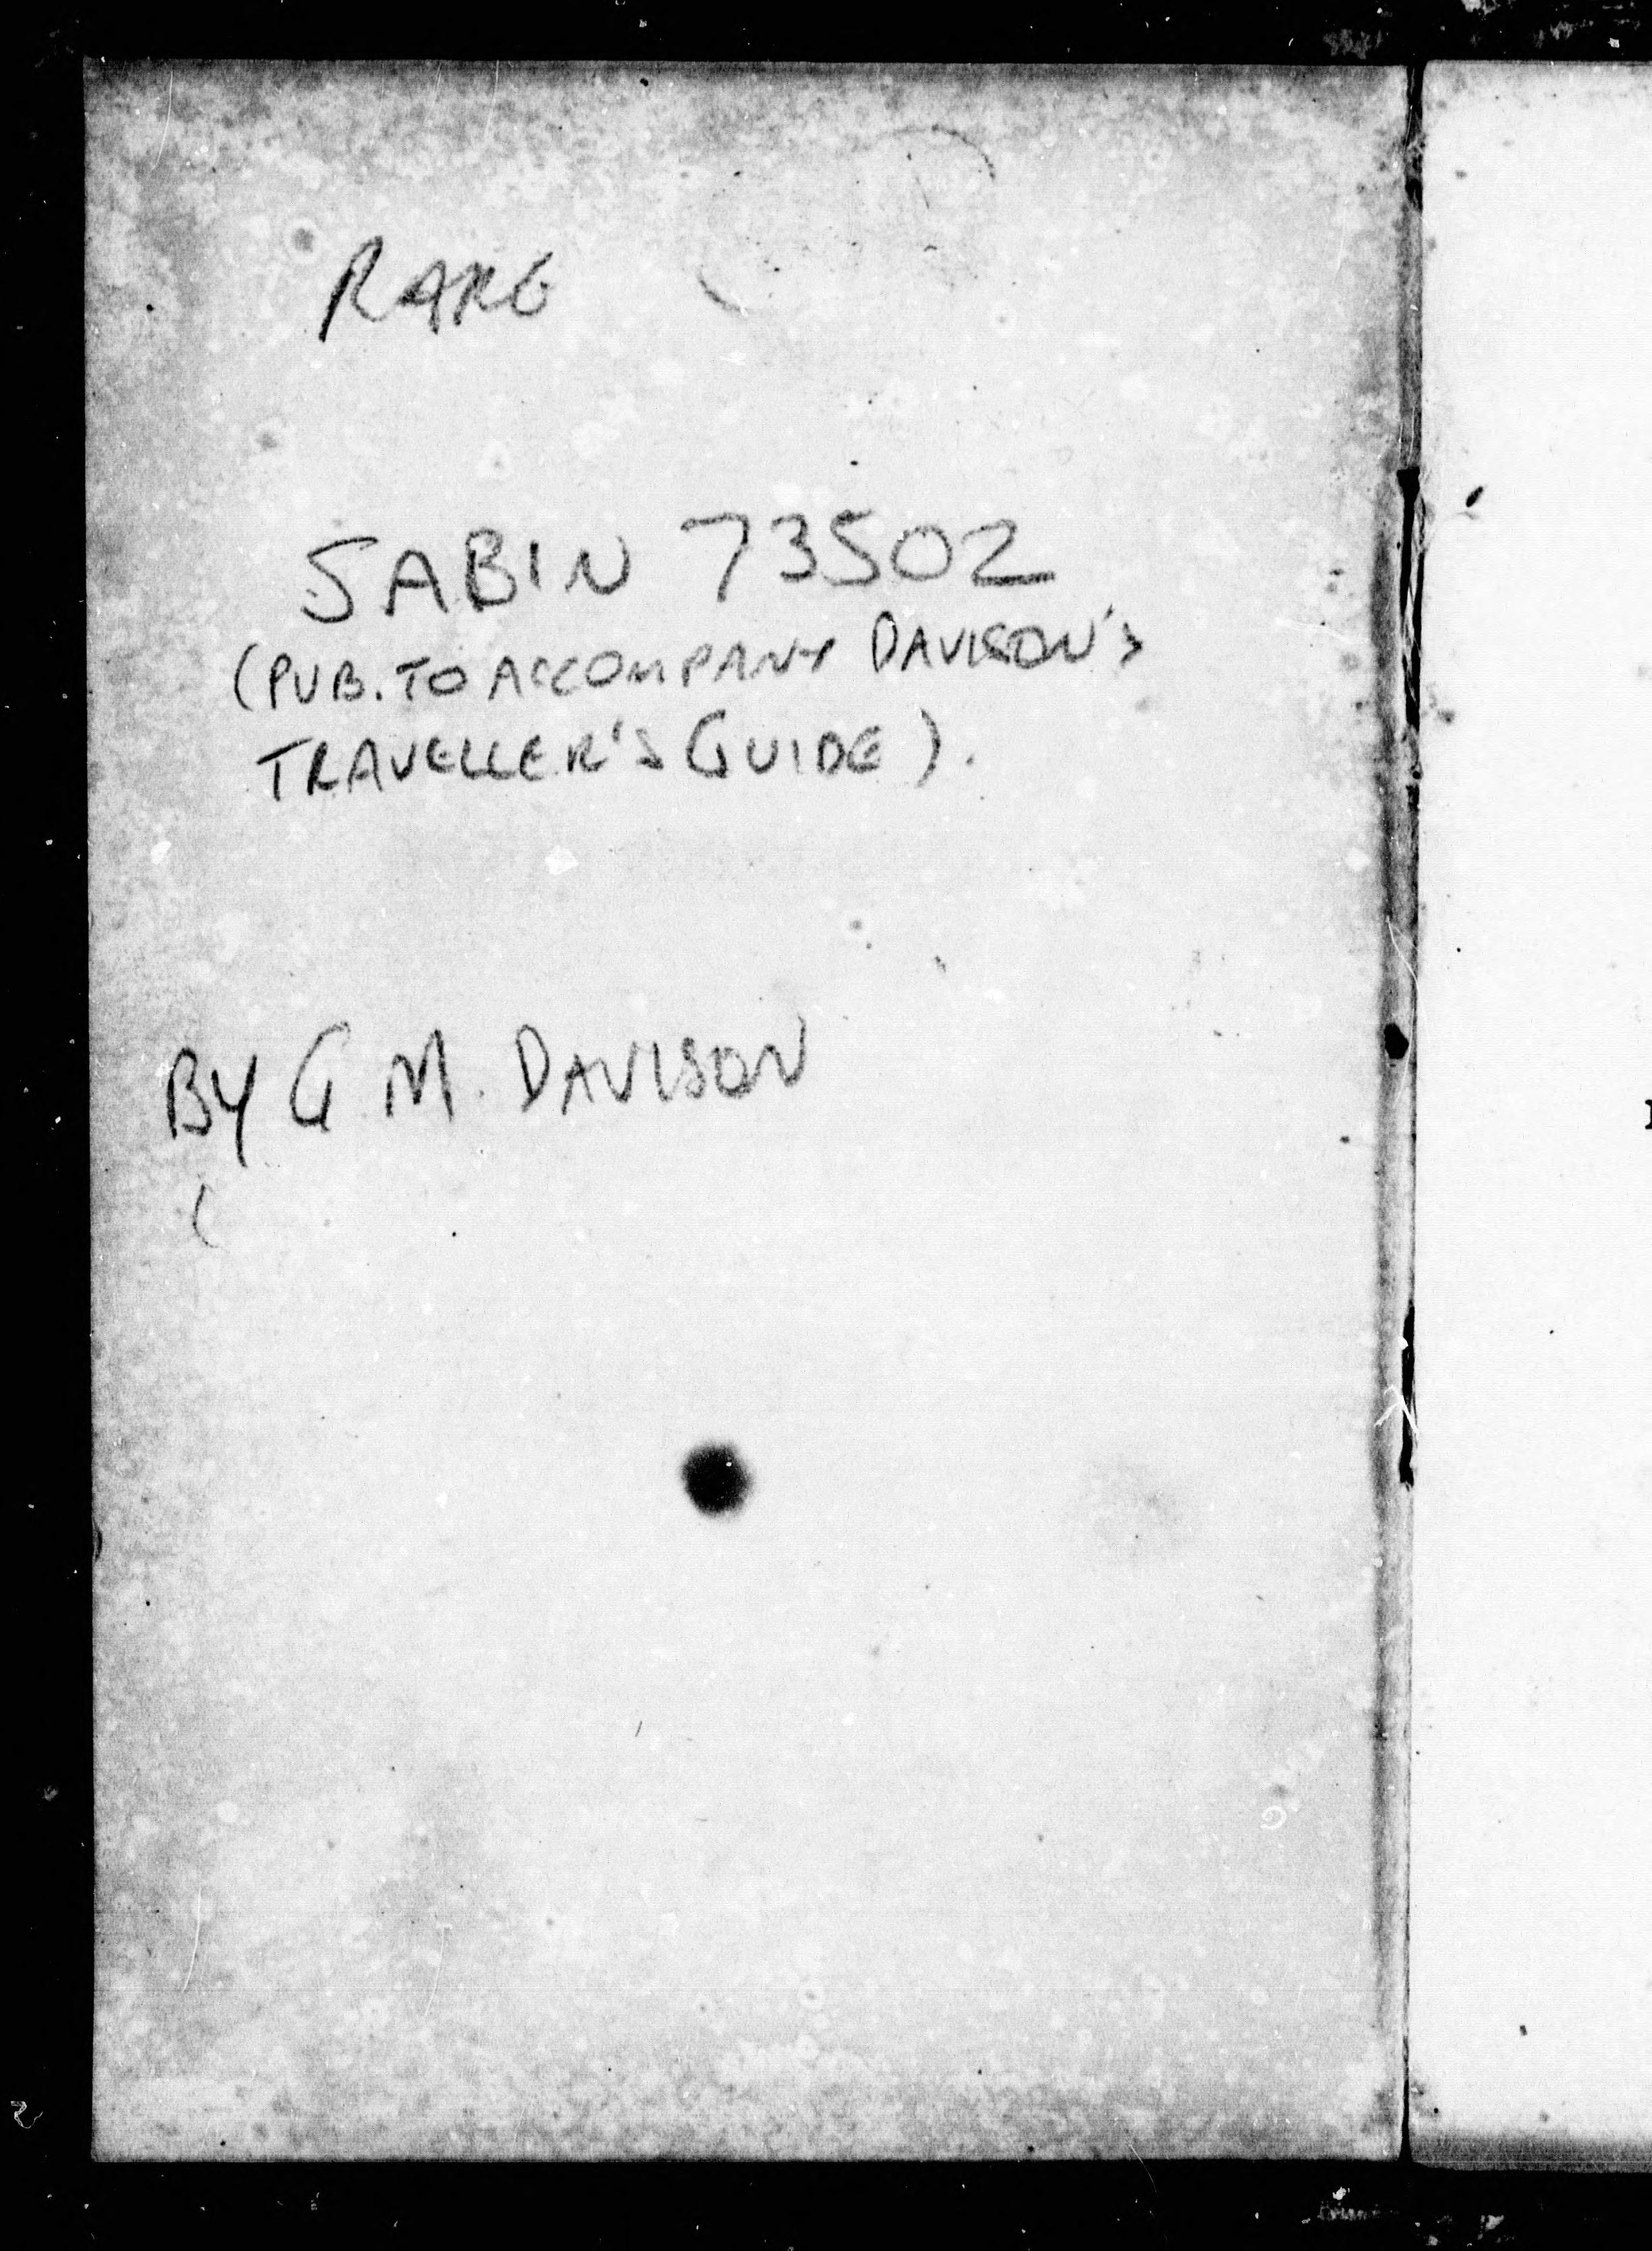 RARE
SABIN 73502
(PUB. TO ACCOMPANY DAVISON'S
TRAVELLER'S GUIDE).
BY G M. DAVISON
(